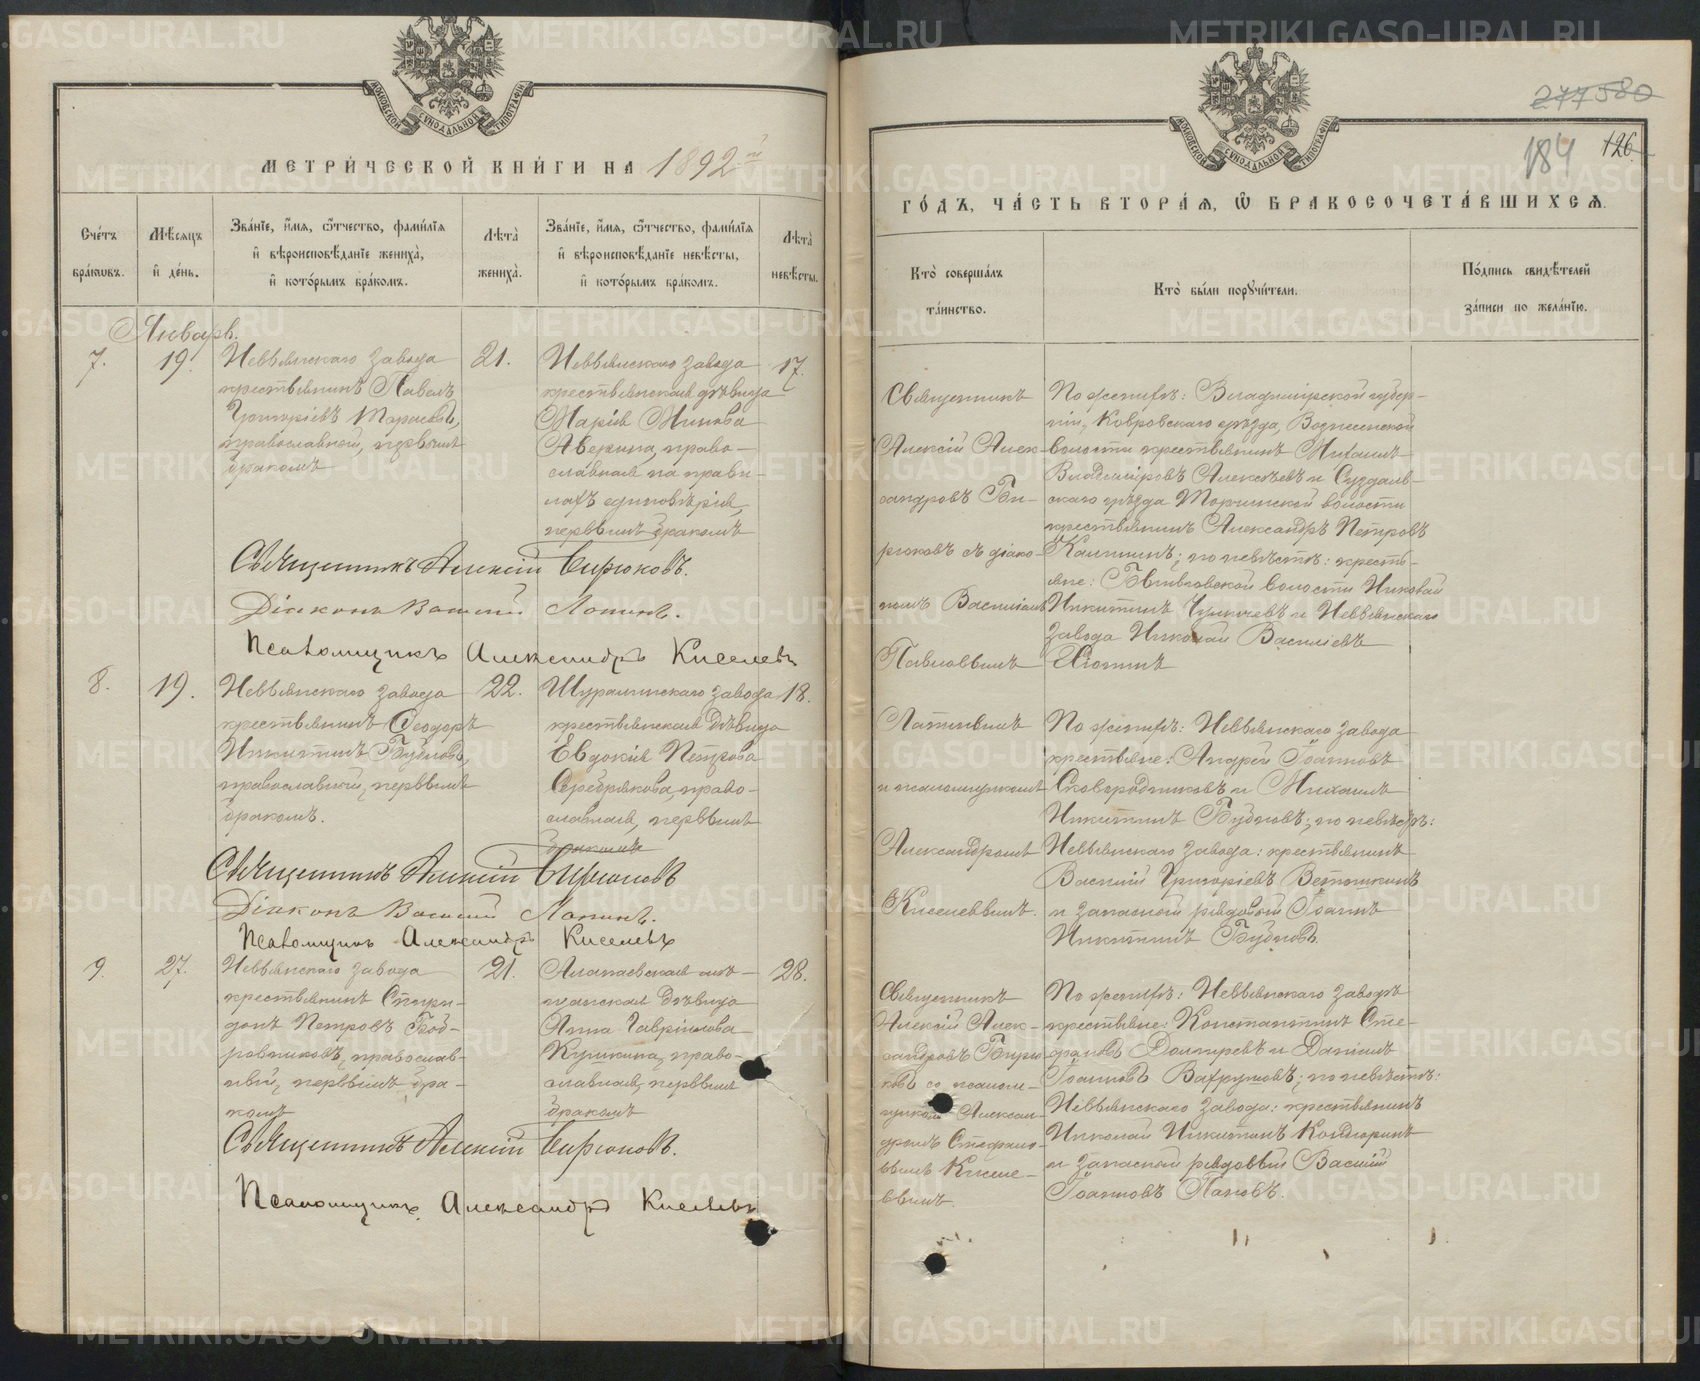 МЕТРИ́ЧЕСКОЙ КНИ́ГИ НА 1892 й
Сче́тъ бра́ковъ.
Мѣ́сяцъ и де́нь.
Зва́нїе, и́мя, ѻ҆́тчество, фами́лїя
и҆ вѣроисповѣ́данїе жениха̀,
и҆ кото́рымъ бра́комъ.
Лѣта̀ жениха̀.
Зва́нїе, и́мя, ѻ҆́тчество, фами́лїя
и҆ вѣроисповѣ́данїе невѣ́сты,
и҆ кото́рымъ бра́комъ.
Лѣта̀ невѣ́сты.
Январь.
7.
19.
Невьянскаго завода
крестьянинъ Павелъ
Григорьевъ
православный, первымъ
бракомъ
21.
Невьянскаго завода
крестьянская дѣвица
Марія
Аверина, право-
славная на прави-
лахъ единовѣрія,
первымъ бракомъ
17.
Священникъ Алексій Бирюковъ.
Діаконъ Василій Лапинъ.
Псаломщикъ Александръ Киселевъ
8.
19.
Невьянскаго завода
крестьянинъ Ѳеодоръ
Никитинъ Бубновъ,
православный, первымъ
бракомъ.
22.
Шуралинскаго завода
крестьянская дѣвица
Евдокія Петрова
Серебрякова, право-
славная, первымъ
бракомъ
18.
Священникъ Алексій Бирюковъ
Діаконъ Василій Лапинъ.
Псаломщикъ Александръ Киселевъ
9.
27.
Невьянскаго завода
крестьянинъ Спири-
донъ Петровъ Боб-
ровниковъ, православ-
ный, первымъ бра-
комъ
21.
Алапаевская мѣ-
щанская дѣвица
Анна Гавріилова
Кушкина, право-
славная, первымъ
бракомъ
28.
Священникъ Алексій Бирюковъ.
Псаломщикъ Александръ Киселевъ
277 580
184 126
ГО́ДЪ, ЧА́СТЬ ВТОРА́Я, Ѡ БРАКОСОЧЕТА́ВШИХСЯ.
Кто̀ соверша́лъ
та́инство.
Кто̀ бы́ли порꙋчи́тели.
По́дпись свидѣ́телей
за́писи по жела́нїю.
Священникъ
Алексій Алек-
сандровъ Би-
рюковъ съ діако-
номъ Василіемъ
Павловымъ
Лапинымъ
и псаломщикомъ
Александромъ
Киселевымъ.
По женихѣ: Владимірской губер-
ніи, Ковровскаго уѣзда, Вознесенской
волости крестьянинъ Михаилъ
Владиміровъ Алексѣевъ и Суздаль-
скаго уѣзда Торчинской волости
крестьянинъ Александръ Петровъ
Калининъ; по невѣстѣ: кресть-
яне: волости Николай
Никитинъ и Невьянскаго
завода Николай Василіевъ
По женихѣ: Невьянскаго завода
крестьяне: Андрей Іоанновъ
Сковородниковъ и Михаилъ
Никитинъ Бубновъ; по невѣстѣ:
Невьянскаго завода: крестьянинъ
Василій Григоріевъ Ветошкинъ
и запасной рядовой Іоаннъ
Никитинъ Бубновъ.
Священникъ
Алексій Алек-
сандровъ Бирю-
ковъ со псалом-
щикомъ Алексан-
дромъ Стефано-
вымъ Киселе-
вымъ.
По женихѣ: Невьянскаго завода
крестьяне: Константинъ Сте-
фановъ и Даніилъ
Іоанновъ Вахрушовъ; по невѣстѣ:
Невьянскаго завода: крестьянинъ
Николай Никитинъ Кондюринъ
и запасной рядовый Василій
Іоанновъ Пановъ.
METRIKI.GASO-URAL.RU